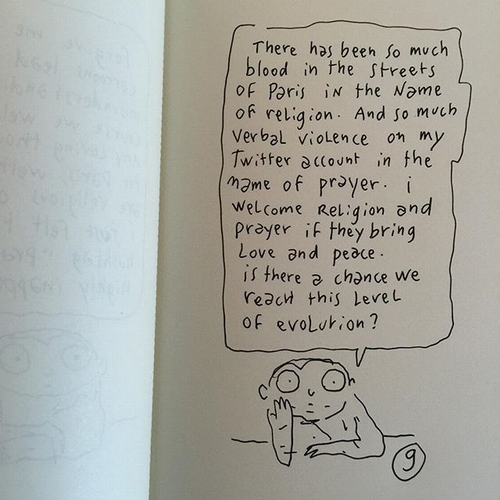 There has been so much
blood in the streets
of Paris in the name
of religion. And so much
verbal violence on my
Twitter account in the
name of prayer. i
welcome Religion and
prayer if they bring
Love and peace.
is there a chance we
reach this Level
of evolution?
9